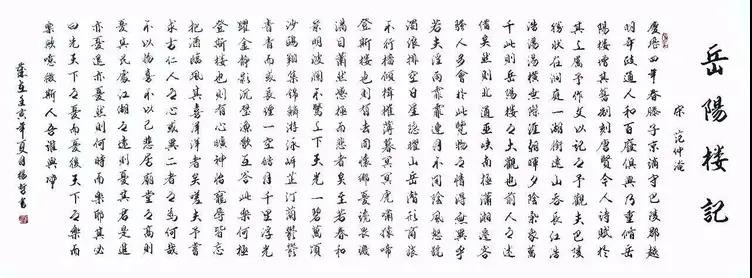 岳陽楼記
宋 范仲淹
慶歷四年春滕子京謫守巴陵郡越
明年政通人和百廢俱興乃重脩岳
陽楼增其舊制刻唐賢今人詩賦於
其上属予作文以記之予觀夫巴陵
勝狀在洞庭一湖銜遠山吞長江浩
浩湯湯橫無際涯朝暉夕陰氣象萬
千此則岳陽楼之大觀也前人之述
備矣然則北通巫峽南極瀟湘遷客
騷人多會於此覽物之情得無異乎
若夫淫雨霏霏連月不開陰風怒號
濁浪排空日星隱耀山岳潛形商旅
不行檣傾楫摧薄暮冥冥虎嘯猿啼
登斯楼也則有去國懷鄉憂讒畏譏
滿目蕭然感極而悲者矣至若春和
景明波瀾不驚上下天光一碧萬頃
沙鷗翔集錦鱗游泳岸芷汀蘭鬱鬱
青青而或長煙一空皓月千里浮光
耀金静影沉璧漁歌互答此樂何極
登斯楼也則有心曠神怡寵辱皆忘
把酒臨風其喜洋洋者矣嗟夫予嘗
求古仁人之心或異二者之為何哉
不以物喜不以己悲居廟堂之高則
憂其民處江湖之遠則憂其君是進
亦憂退亦憂然則何時而樂耶其必
曰先天下之憂而憂後天下之樂而
樂歟噫微斯人吾誰與歸
歲在壬寅年夏月楊哲書